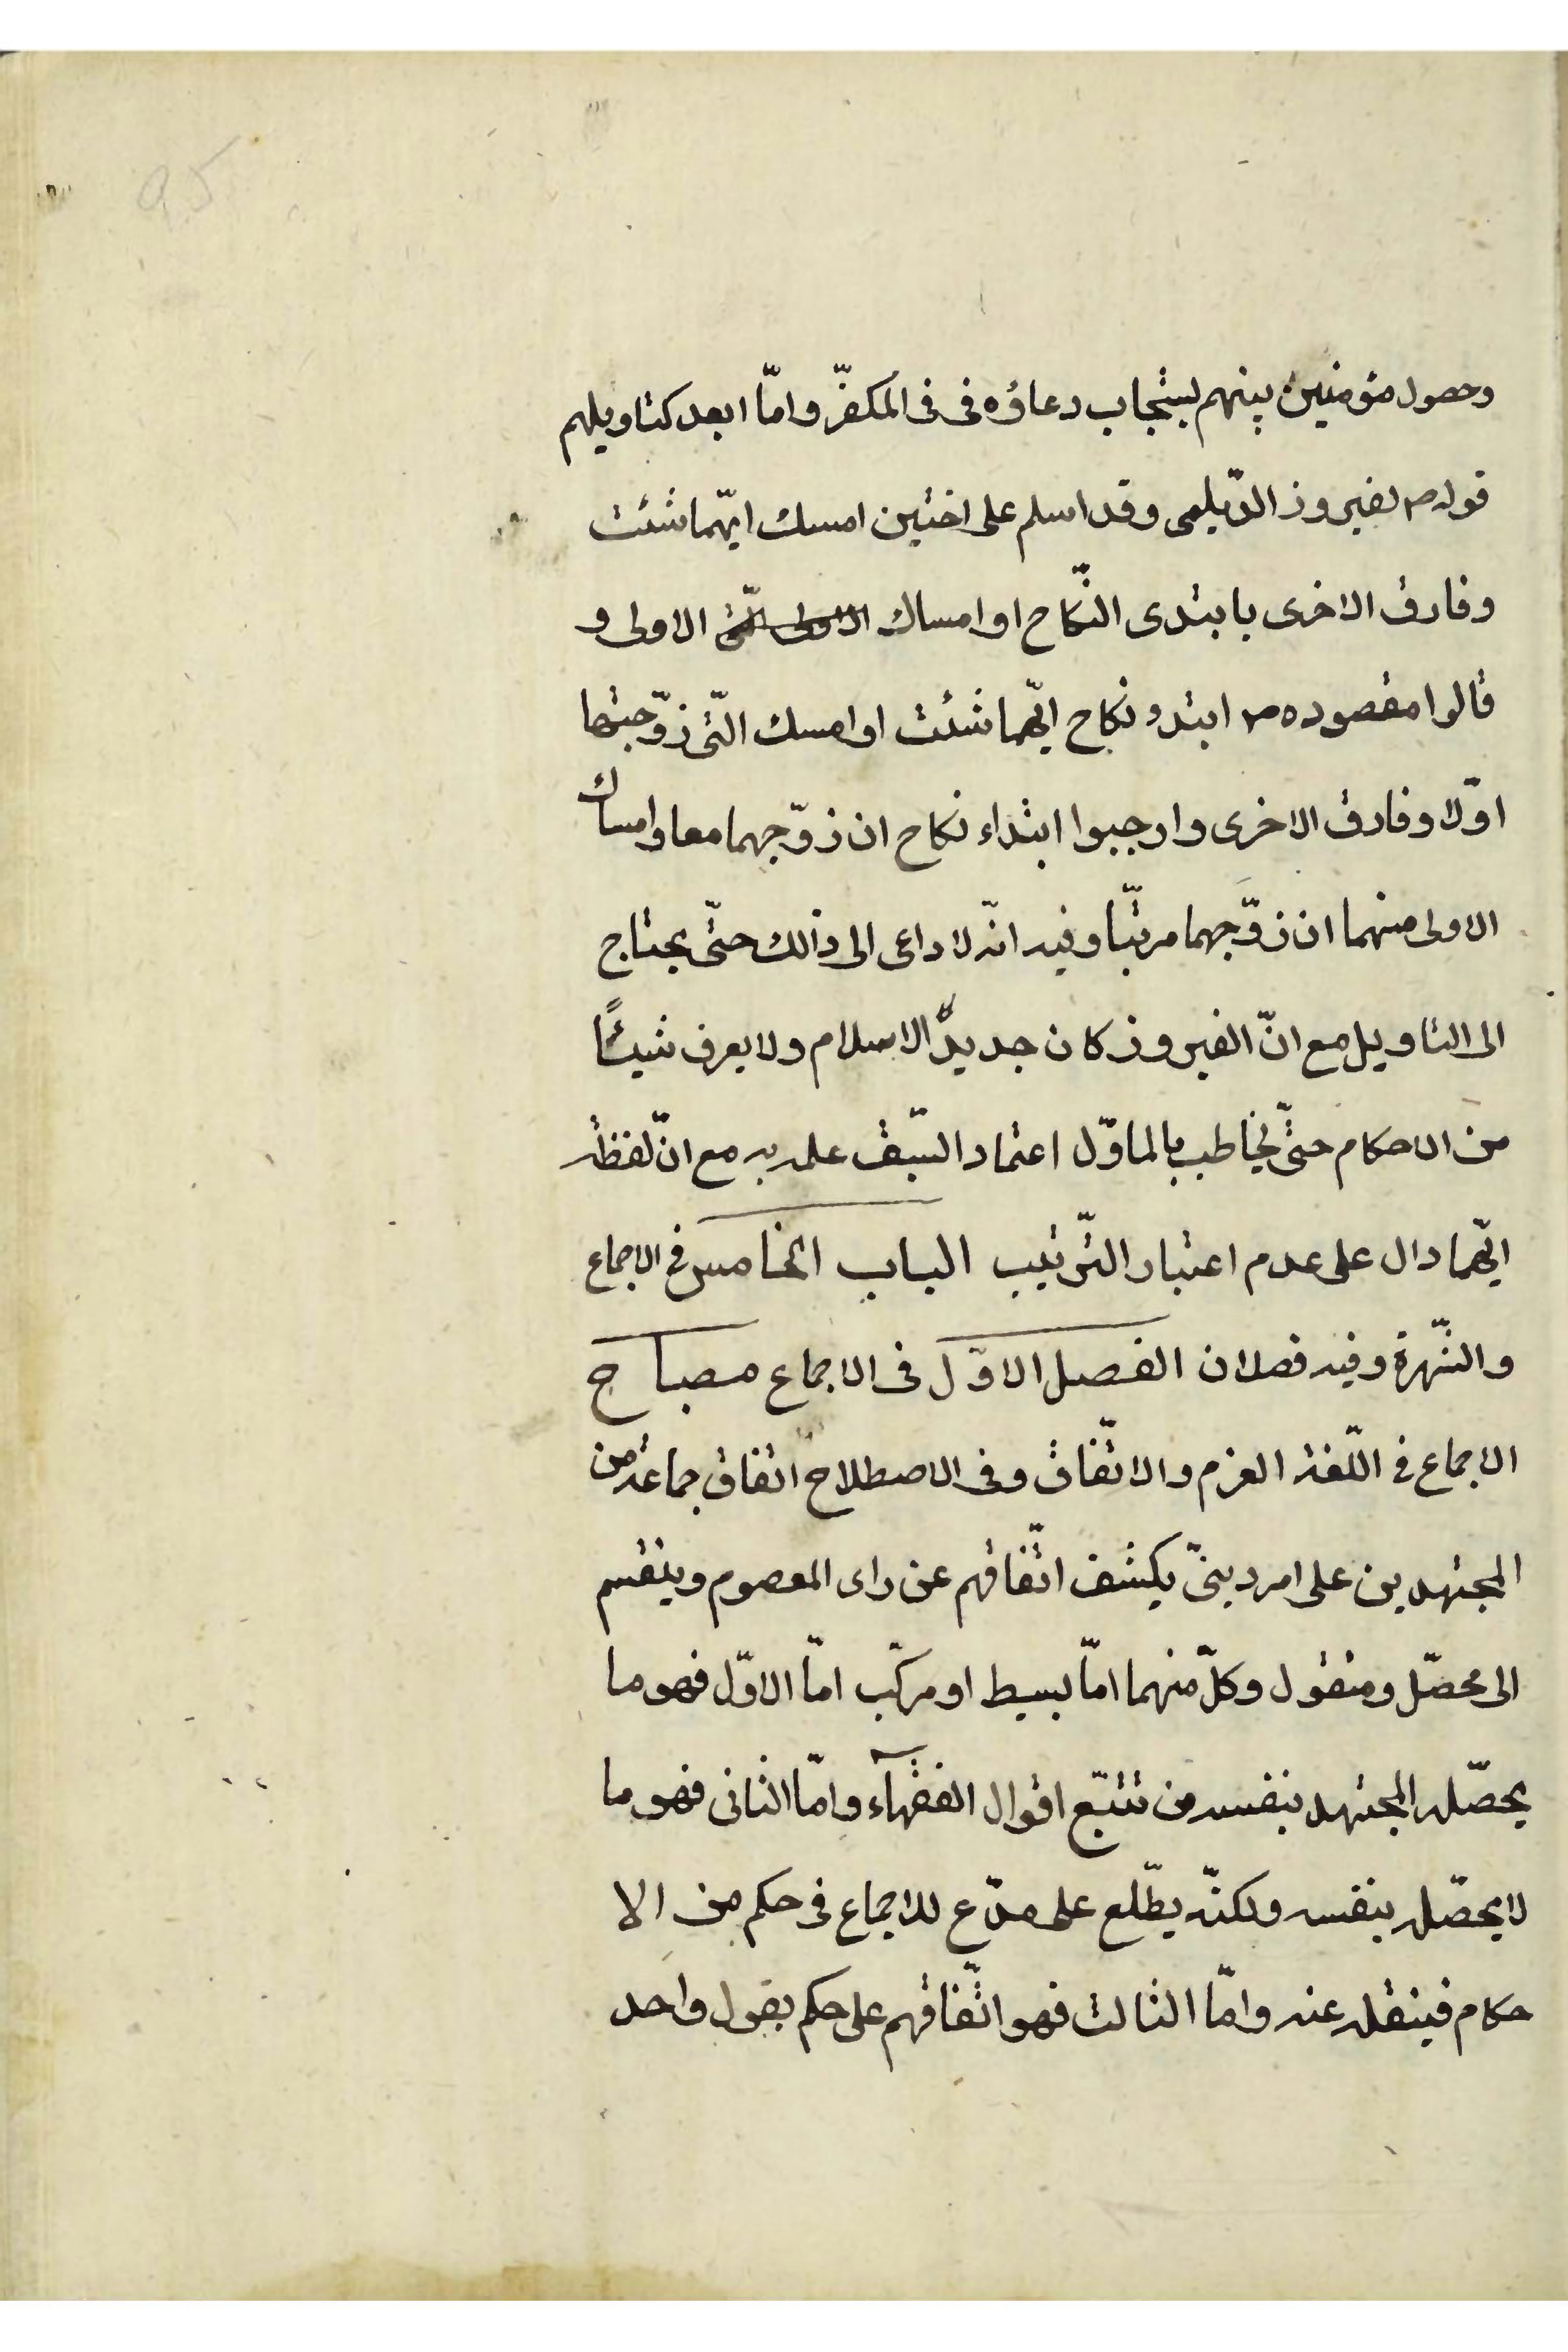 وحصول مؤمنين بينهم يستجاب دعاؤه فى فى المكفّر وامّا ابعد كتاويلهم
قوله ص لفيروز الدّيلمى وقد اسلم على اختين امسك ايّهما شئت
وفارق الاخرى بابتدى النّكاح او امساك الاولى و
قالوا مقصوده ص ابتدو نكاح ايّهما شئت او امسك الّتى زوّجتها
اوّلا وفارق الاخرى واوجبوا ابتداء نكاح ان زوّجهما معا وامساك
الاولى منهما ان زوّجهما مرتبّا وفيه انّه لا داعى الى ذالك حتّى يحتاج
الى التاويل مع انّ الفيروز كان جديد الاسلام ولا يعرف شيئًا
من الاحكام حتّى يخاطب بالماوّل اعتماد السّبق علمه به مع انّ لفظة
ايّهما دال على عدم اعتبار التّرتيب الباب الخامس فى الاجماع
والشّهرة وفيه فصلان الفصل الاوّل فى الاجماع مصباح
الاجماع فى اللّغة العزم والاتّفاق وفى الاصطلاح اتفاق جماعة من
المجتهدين على امر دينىّ يكشف اتّفاقهم عن راى المعصوم وينقسم
الى محصّل ومنقول وكلّ منهما امّا بسيط او مركّب امّا الاوّل فهو ما
يحصّله المجتهد بنفسه من تتبّع اقوال الفقهآء وامّا الثانى فهو ما
لا يحصّله بنفسه ولكنّه يطّلع على مدّع للاجماع فى حكم من الا
حكام فينقله عنه وامّا الثالث فهو اتّفاقهم على حكم بقول واحد